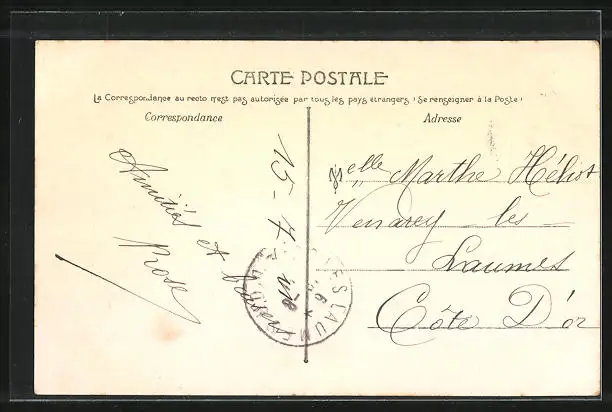 CARTE POSTALE
La Correspondance au recto n'est pas autorisée par tous les pays étrangers (Se renseigner à la Poste)
Correspondance
Adresse
15 - 7 -
Amitiés et baisers
Rose
Melle Marthe Héliot
Venarey les
Laumes
Côte D'or
LES LAUMES